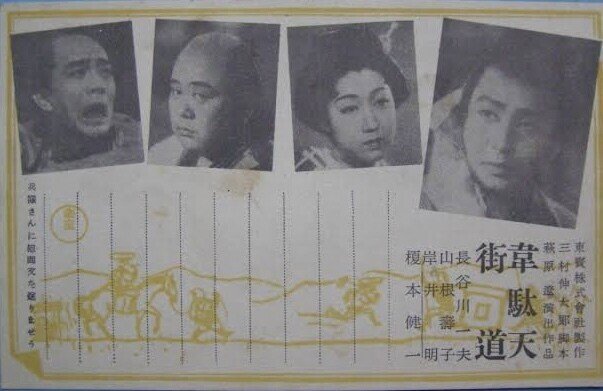 東寶株式會社製作
三村伸太郎脚本
萩原遼演出作品
韋駄天
街道
長谷川一夫
山根壽子
岸井明
榎本健一
兵隊さんに慰問文を送りませう